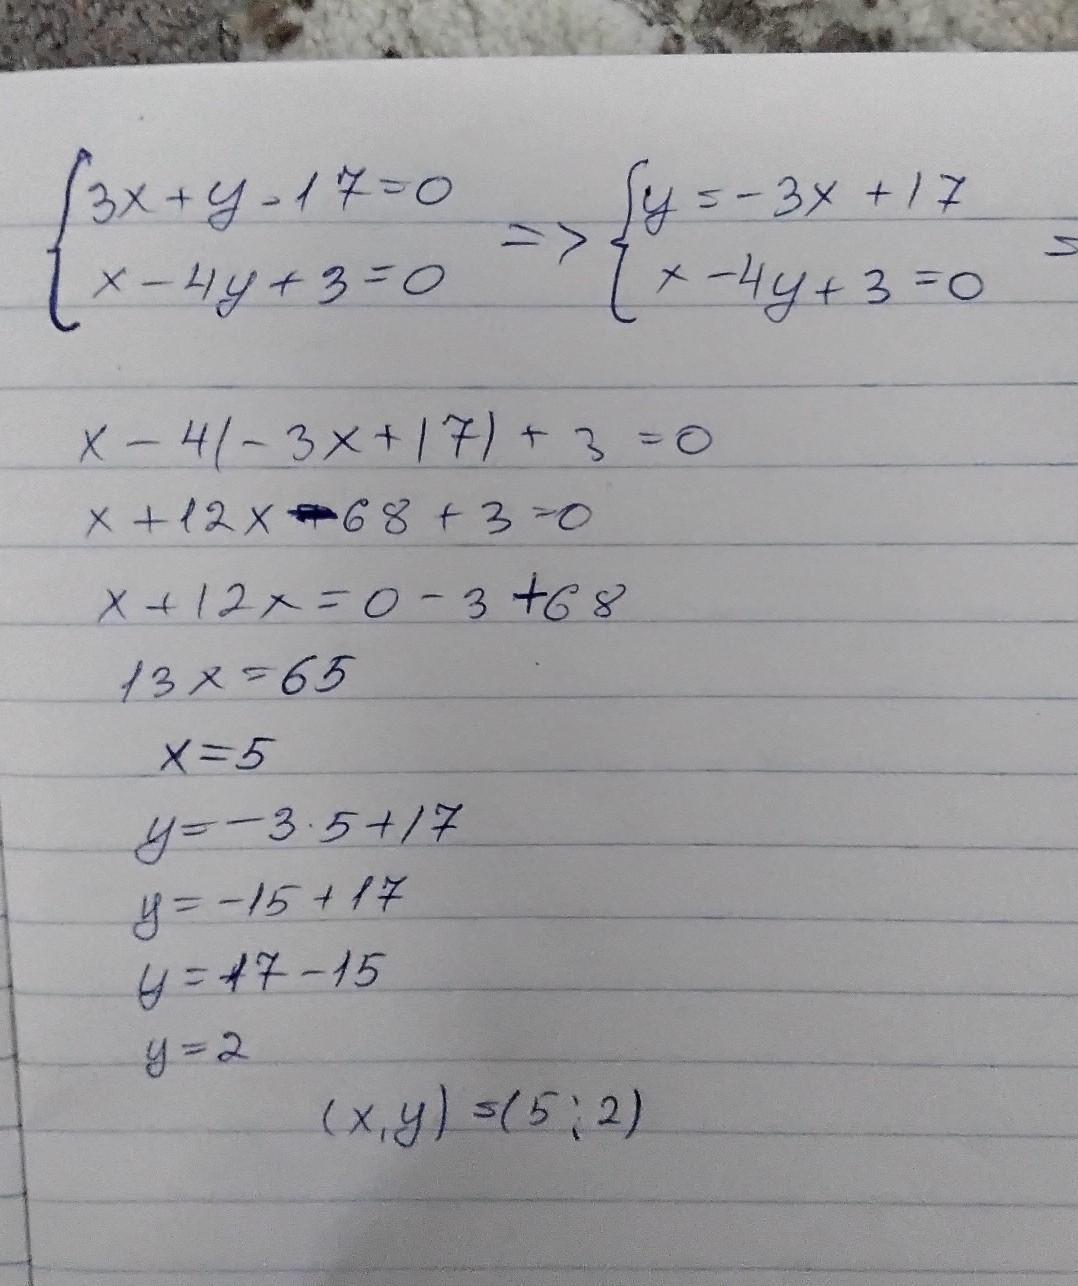 {3x+y-17=0 => {y=-3x+17 =
{x-4y+3=0 {x-4y+3=0
x-4(-3x+17)+3=0
x+12x-68+3=0
x+12x=0-3+68
13x=65
x=5
y=-3·5+17
y=-15+17
y=17-15
y=2
(x,y)=(5;2)